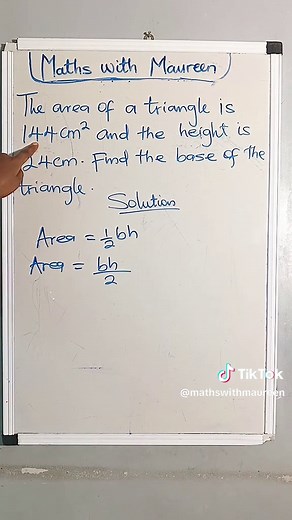 Maths with Maureen
The area of a triangle is
144cm² and the height is
24cm. Find the base of the
triangle.
Solution
Area = 1/2 bh
Area = bh/2
TikTok
@mathswithmaureen